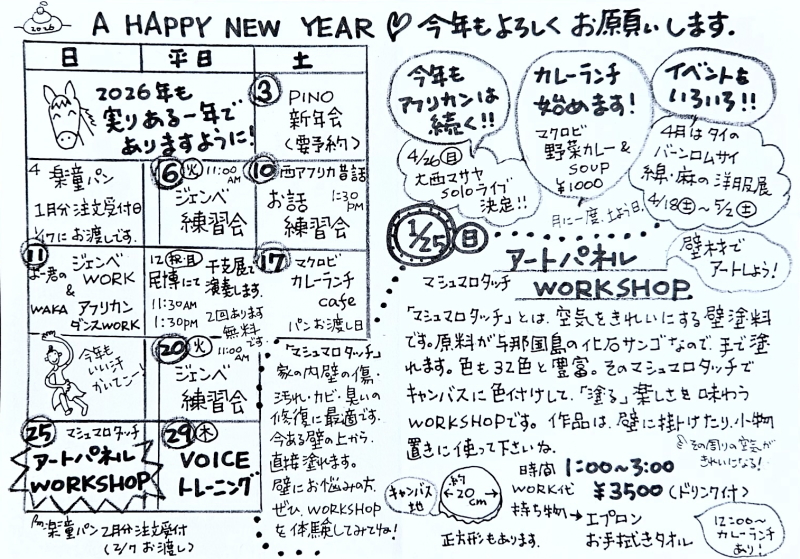 2026
A HAPPY NEW YEAR ♡ 今年もよろしくお願いします.
日 平日 土
2026年も
実りある一年で
ありますように!
3
PINO
新年会
(要予約)
4 楽童パン
1月分注文受付日
1/17にお渡しです.
6 火 11:00 AM
ジャンベ
練習会
10 西アフリカ昔話
お話 1:30 PM
練習会
11
よー君の ジャンベ
WORK
&
WAKA アフリカン
ダンスWORK
12 祝月 干支展で
民博にて 演奏します.
11:30AM 2回あります
1:30PM 無料です.
17 マクロビ
カレーランチ
cafe
パンお渡し日
今年も
いい汗
かいてこー!
20 火 11:00 AM
ジャンベ
練習会
25 マシュマロタッチ
アートパネル
WORKSHOP
29 木
VOICE
トレーニング
楽童パン2月分注文受付
(2/7お渡し)
「マシュマロタッチ」
家の内壁の傷.
汚れ・カビ・臭いの
修復に最適です.
今ある壁の上から.
直接塗れます.
壁にお悩みの方.
ぜひ、WORKSHOP
を体験してみてね!
今年も
アフリカンは
続く!!
4/26 日
大西マサヤ
soloライブ
決定!!
カレーランチ
始めます!
マクロビ
野菜カレー&
SOUP
¥1000
月に一度.土よう日.
イベントも
いろいろ!!
4月はタイの
バーンロムサイ
綿・麻の洋服展
4/18土～5/2土
1/25 日
マシュマロタッチ
アートパネル
WORKSHOP
壁材で
アートしよう!
「マシュマロタッチ」とは、空気をきれいにする壁塗料
です。原料が与那国島の化石サンゴなので、手で塗
れます。色も32色と豊富。そのマシュマロタッチで
キャンバスに色付けして、「塗る」楽しさを味わう
WORKSHOPです。作品は、壁に掛けたり、小物
置きに使って下さいね.
その周りの空気が
きれいになる!
キャンバス
地
約
20
cm
正方形もあります.
時間 1:00～3:00
WORK代 ¥3500 (ドリンク付)
持ち物→エプロン
お手拭きタオル
12:00～
カレーランチ
あり!